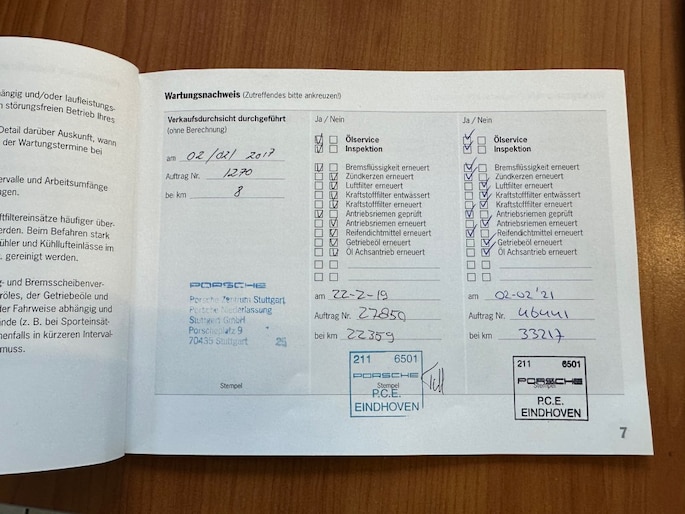 ängig und/oder laufleistungs-
n störungsfreien Betrieb Ihres
Detail darüber Auskunft, wann
der Wartungstermine bei
ervalle und Arbeitsumfänge
gen.
ftfiltereinsätze häufiger über-
erden. Beim Befahren stark
ühler und Kühllufteinlässe im
. gereinigt werden.
g- und Bremsscheibenver-
röles, der Getriebeöle und
der Fahrweise abhängig und
ände (z. B. bei Sporteinsät-
enfalls in kürzeren Interval-
muss.
Wartungsnachweis (Zutreffendes bitte ankreuzen!)
Verkaufsdurchsicht durchgeführt
(ohne Berechnung)
am 02/02/2017
Auftrag Nr. 1270
bei km 8
PORSCHE
Porsche Zentrum Stuttgart
Porsche Niederlassung
Stuttgart GmbH
Porscheplatz 9
70435 Stuttgart 25
Stempel
Ja / Nein
Ölservice
Inspektion
Bremsflüssigkeit erneuert
Zündkerzen erneuert
Luftfilter erneuert
Kraftstofffilter entwässert
Kraftstofffilter erneuert
Antriebsriemen geprüft
Antriebsriemen erneuert
Reifendichtmittel erneuert
Getriebeöl erneuert
Öl Achsantrieb erneuert
am 22-2-19
Auftrag Nr. 27850
bei km 22359
211 6501
PORSCHE
Stempel
P.C.E.
EINDHOVEN
Ja / Nein
Ölservice
Inspektion
Bremsflüssigkeit erneuert
Zündkerzen erneuert
Luftfilter erneuert
Kraftstofffilter entwässert
Kraftstofffilter erneuert
Antriebsriemen geprüft
Antriebsriemen erneuert
Reifendichtmittel erneuert
Getriebeöl erneuert
Öl Achsantrieb erneuert
am 02-02'21
Auftrag Nr. 46441
bei km 33217
211 6501
PORSCHE
Stempel
P.C.E.
EINDHOVEN
7